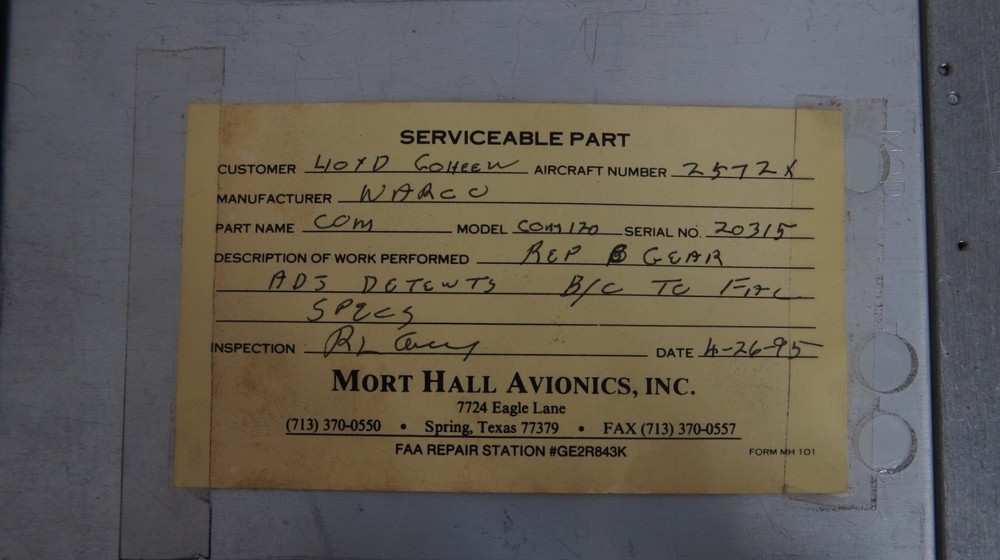 SERVICEABLE PART
CUSTOMER LLOYD GOHEEN AIRCRAFT NUMBER 2572X
MANUFACTURER NARCO
PART NAME COM MODEL COM120 SERIAL NO. 20315
DESCRIPTION OF WORK PERFORMED REP GEAR
ADJ DETENTS B/C TO FAC
SPECS
INSPECTION RL DATE 4-26-95
MORT HALL AVIONICS, INC.
7724 Eagle Lane
(713) 370-0550 • Spring, Texas 77379 • FAX (713) 370-0557
FAA REPAIR STATION #GE2R843K
FORM MH 101
MOD